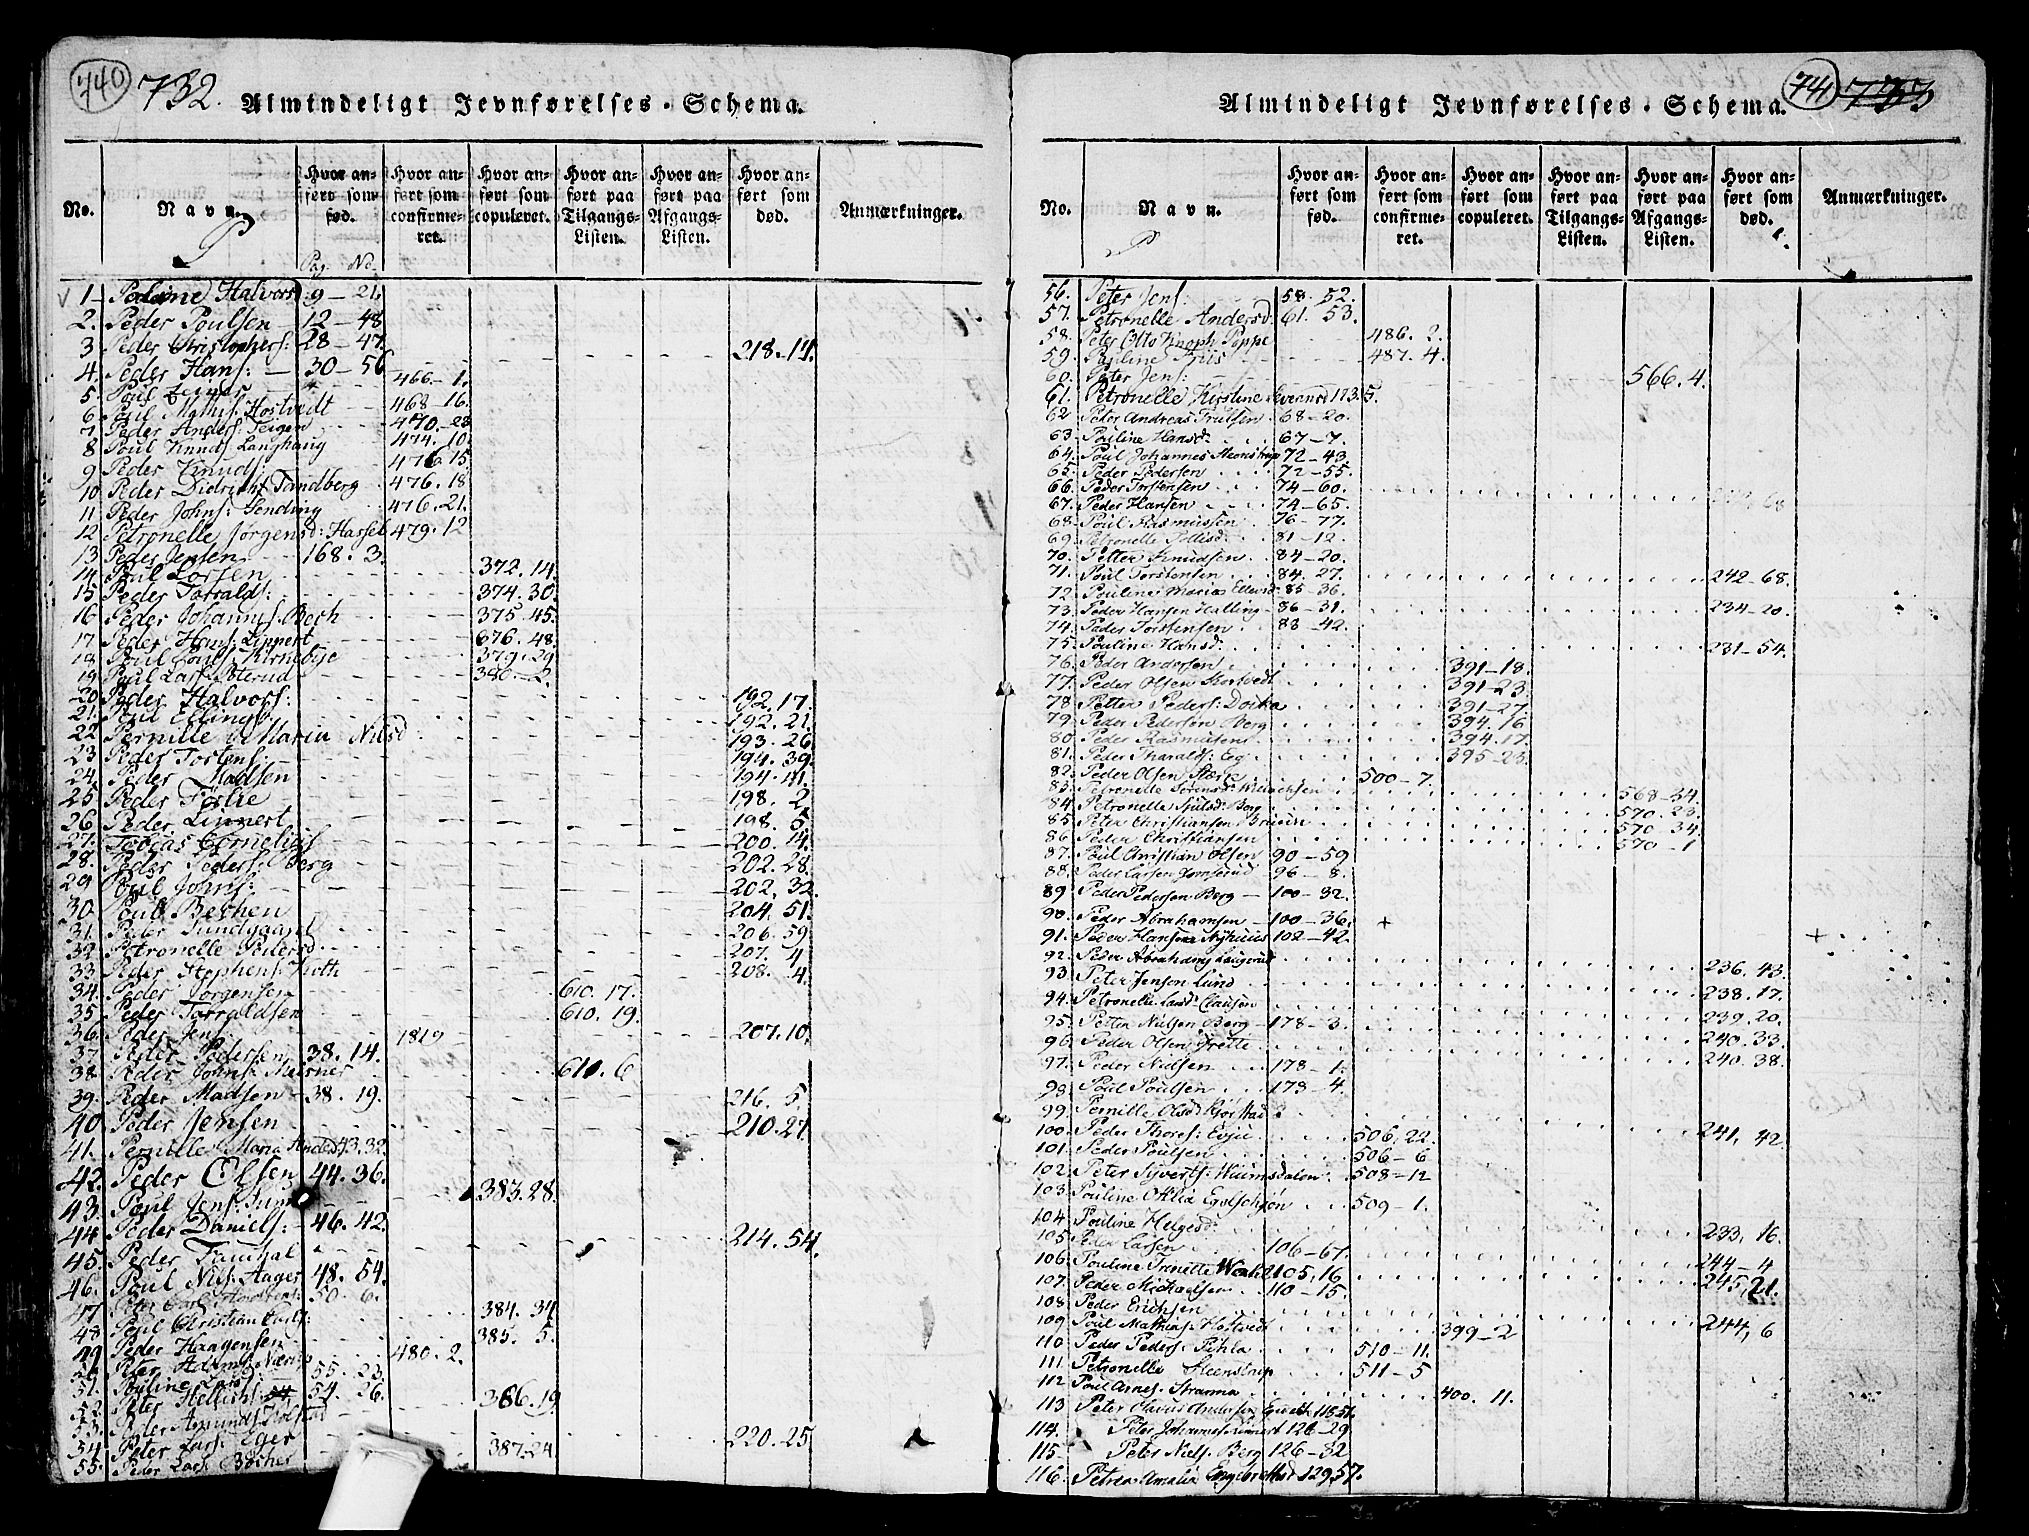 740 732.
Almindeligt Jevnførelses-Schema.
No.
Navn.
P
Hvor anført som fød.
Hvor anført som confirmeret.
Hvor anført som copuleret.
Hvor anført paa Tilgangs-Listen.
Hvor anført paa Afgangs-Listen.
Hvor anført som død.
Anmærkninger.
Pag. No.
1 Halvorsd: 9 - 21.
2. Peder Poulsen 12 - 48
3 Peder Christophers: 28 - 47. 218. 14.
4. Peder Hans: 30 - 56
5. Poul 466 - 1.
6. Poul Mathis: Hostvedt 468 - 16.
7 Peder Anders: Teigen 470 - 28
8 Poul Knuds Langhaug 474. 10.
9 Peder Knuds: 476. 15
10 Peder Didrichs: Tandberg 476. 18
11 Peder Johns: Sending 476. 21.
12 Petronelle Jørgensd: Hassel 479. 12
13 Peder Jensen 168. 3.
14 Poul Larsen 372. 14.
15 Peder Torralds: 374. 30.
16 Peder Johannes: Bech 375. 45.
17 Peder Hans: Lippert 676. 48
18 Poul Kirkebye 379. 29
19 Poul Lars: 380 - 2.
20 Peder Halvors: 192. 17.
21. Poul Ellings: 192. 21.
22 Pernille Maria Nilsd 193. 26
23 Peder Torstens: 194. 39.
24 Peder Madsen 194. 41.
25 Peder 198. 2
26 Peder Lippert 198. 5
27. Tobias Cornelius 200. 14.
28. Peder Peders: Berg 202. 28
29 Poul Johns: 202. 32
30 Poul Bechen 204. 51.
31. Peter Sundgaard 206. 59
32 Petronelle Pedersd 207. 4
33 Peder Stephens: 208. 4
34. Peder Jørgensen 610. 17.
35 Peder Torraldsen 610. 19.
36. Peder Jens: 1819 207. 10.
37. Peder Pedersen 38. 14.
38 Peder Johns: Meisner 611. 6
39. Peder Madsen 38. 19. 216. 5.
40 Peder Jensen 210. 27
41. Pernille Maria Andersd 43. 32
42. Peder Olsen 44. 36.
43. Poul Jens: 383. 28
44 Peder Daniels: 46. 42.
45. Peder 214. 54.
46. Poul Nils: Aager 48. 54.
47 Peter Carl 50. 6.
48 Poul Christian 384. 34
49 Peder Haagensen 385. 5.
Peter 480. 2.
51. Pouline Lars: 55. 23.
52. Peter 54. 26
53. Peder Amunds: 366. 19
54. Peter Lars: Eger 220. 25
55. Peder Lars: 387. 24
Almindeligt Jevnførelses-Schema. 741 733
No.
Navn.
P
Hvor anført som fød.
Hvor anført som confirmeret.
Hvor anført som copuleret.
Hvor anført paa Tilgangs-Listen.
Hvor anført paa Afgangs-Listen.
Hvor anført som død.
Anmærkninger.
56. Peter Jens: 58. 52.
57. Petronelle Andersd: 61. 53.
58. Peter Otto Knoph Poppe 486. 2.
59. Pauline Friis 487. 4.
60. Peter Jens: 566. 4.
61. Petronelle Kirstine 173. 5.
62 Peter Andreas Trulsen 68 - 20.
63 Pouline Hansd: 67 - 7.
64. Poul Johannes Steenstrup 72 - 43.
65. Peder Pedersen 72 - 55.
66. Peder Torstensen 74 - 60.
67. Peder Hansen 74 - 65.
68. Poul Rasmussen 76 - 77.
69. Petronelle 81 - 12.
70. Petter Knudsen 84 - 20.
71. Poul Torstensen 84. 27. 242 - 68.
72. Pouline Marias Ellensd 85 - 36.
73. Peder Hansen Halling 86 - 31. 234 - 20.
74. Peder Torstensen 88 - 42.
75. Pouline Hansd: 231 - 54.
76. Peder Andersen 391 - 18.
77. Peder Olsen Hostvedt 391 - 23.
78 Petter Peders: Dorka 391 - 27.
79. Peder Pedersen Berg 394. 16
80. Peder Rasmussen 394. 17.
81. Peder Tharalds: Eeg 395 - 23.
82. Peder Olsen 500 - 7.
83. Petronelle Sørensd: 568 - 34.
84. Petronelle Berg 570. 23.
85. Peter Christiansen 570. 34
86. Peder Christiansen 570 - 1
87. Poul Christian Olsen 90 - 59
88. Peder Larsen 96 - 8.
89 Peder Pedersen Berg 100 - 32.
90. Peder Abrahamsen 100 - 36. +
91. Peder Hansen Nyhuus 102 - 42. +
92. Peder Abrahams: 236. 43.
93. Peter Jensen Lund 238. 17.
94. Petronelle Larsd: Clausen 239. 20.
95. Petter Nielsen Berg 178 - 3. 240. 33.
96. Peder Olsen Grette 240. 38.
97. Peder Nielsen 178 - 1.
98. Poul Poulsen 178 - 4.
99. Pernille Olsd:
100. Peder Thores: Evju 506. 22. 241, 42
101. Peder Poulsen 506 - 6
102. Peter Syverts: 508 - 12
103. Pouline Othlia 509 - 1.
104 Pouline Helgesd: 233, 16.
105. Peder Larsen 106 - 67.
106. Pouline 105, 16 244 - 4
107. Peder Michaelsen 110 - 15. 245, 21.
108 Peder Erichsen
109. Poul Mathias: Hostvedt 399 - 2 244, 6
110 Peder Peders: Pihla 510 - 11.
111. Petronelle Steenstrup 511 - 5
112 Poul Arnes: Stranna 400. 11.
113 Peter Andersen 118 51.
114. Peter Johannes 126 - 29.
115 Peter Niels: Berg 126 - 82
116. Petrea Amalia Engebretsd 129 57.